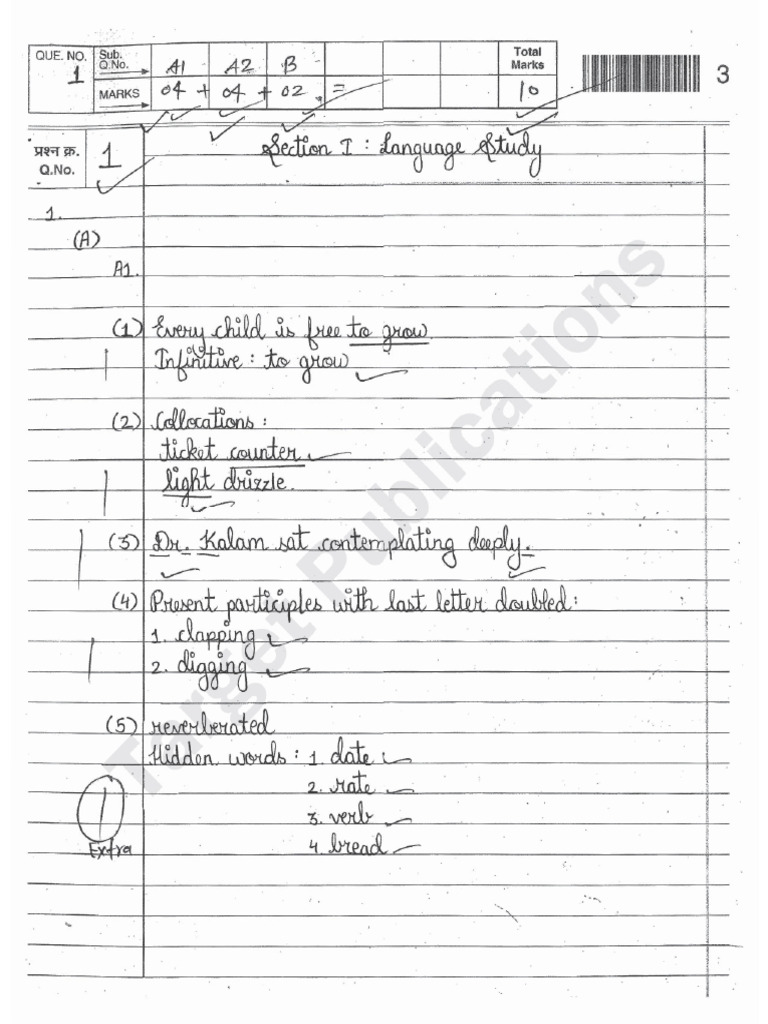 QUE. NO. Sub. Q.No. A1 A2 B Total Marks
1 MARKS 04 + 04 + 02 = 10
3
प्रश्न क्र. Q.No. 1 Section I : Language Study
1.
(A)
A1.
(1) Every child is free to grow
1 Infinitive : to grow
(2) Collocations :
ticket counter
1 light drizzle.
1 (3) Dr. Kalam sat contemplating deeply.
(4) Present participles with last letter doubled :
1. clapping
1 2. digging
(5) reverberated
Hidden words : 1. date
2. rate
1 3. verb
Extra 4. bread
Target Publications